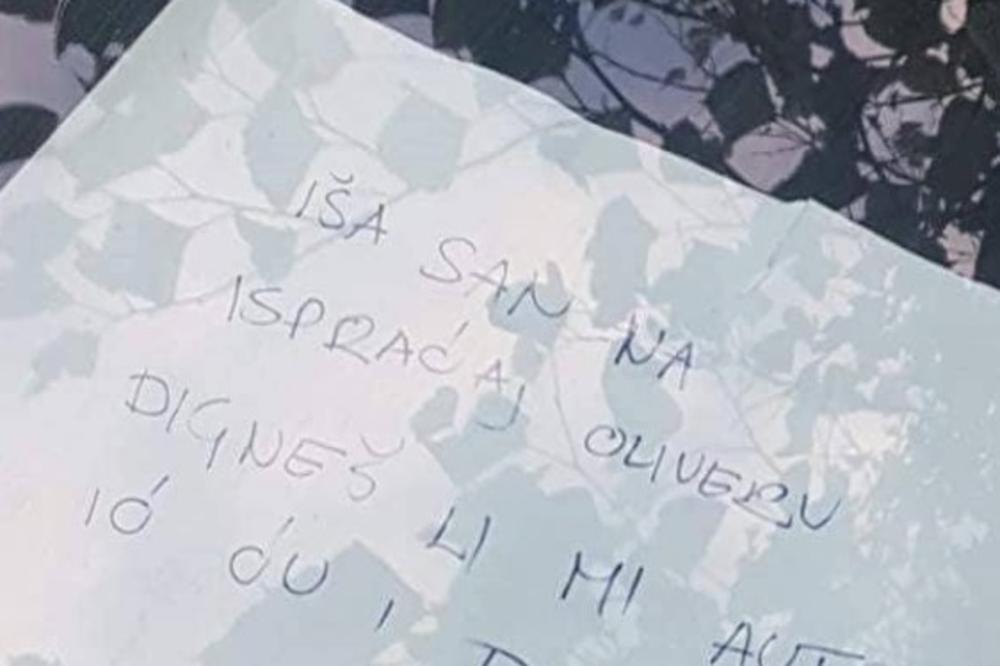 IŠA SAN NA
ISPRAĆAJ OLIVERU
DIGNEŠ LI MI AUT
IÓ ÓU,